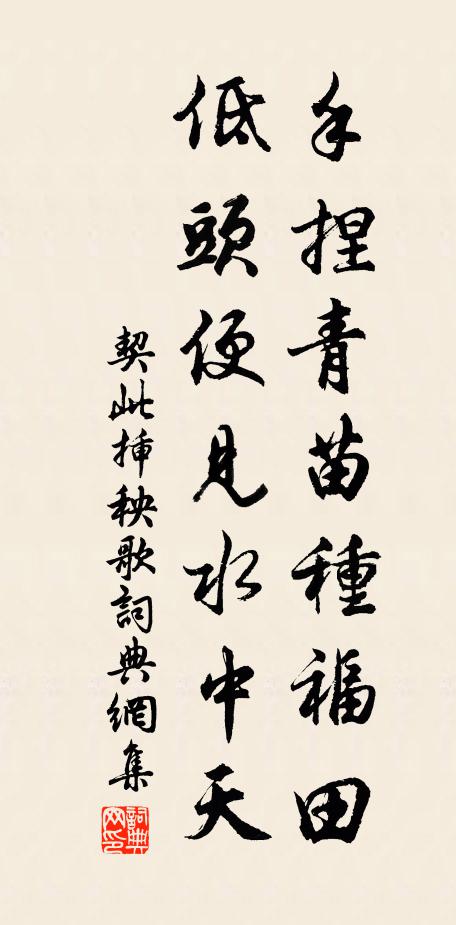 手捏青苗種福田
低頭便見水中天
契此插秧歌詞典網集
詞典網印